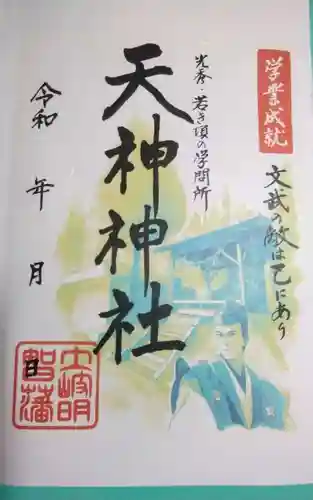 学業成就
文武の敵は己にあり
光秀・若き頃の学問所
天神神社
令和 年 月 日
土岐明
智藩